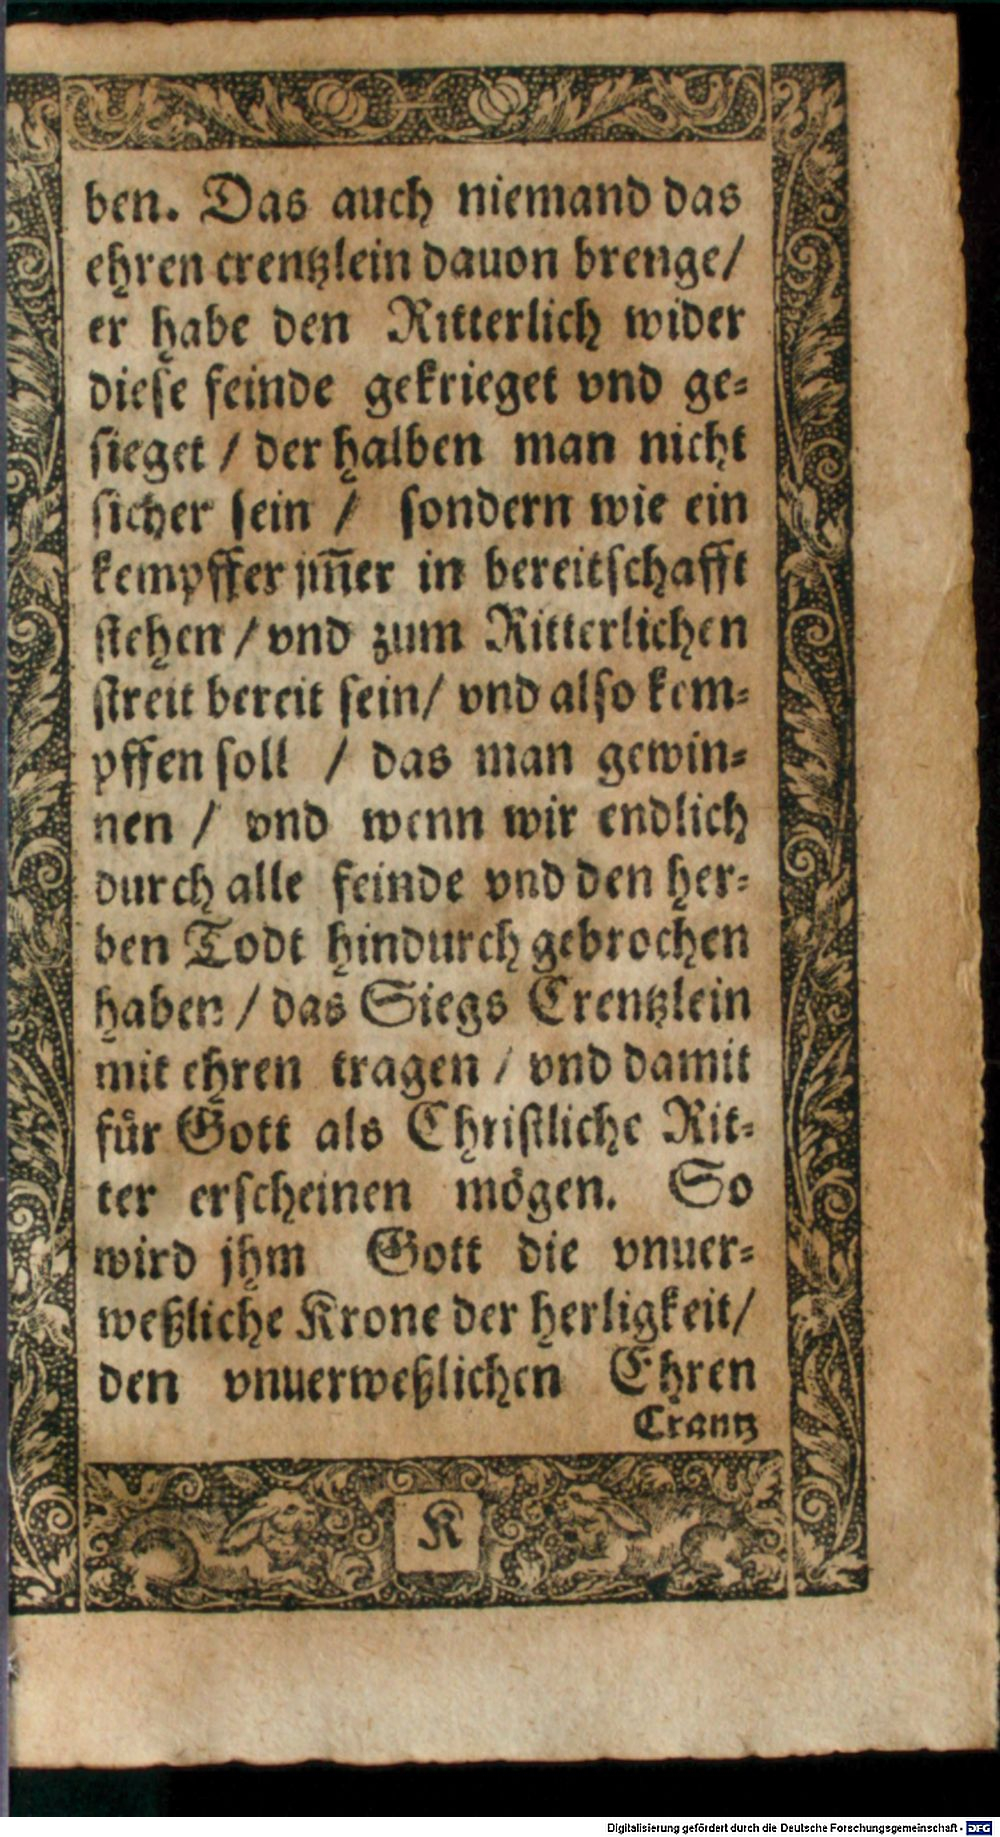 ben. Das auch niemand das
ehren crentzlein dauon brenge/
er habe den Ritterlich wider
diese feinde gekrieget vnd ge-
sieget / der halben man nicht
sicher sein / sondern wie ein
kempffer jm̃er in bereitschafft
stehen / vnd zum Ritterlichen
streit bereit sein/ vnd also kem-
pffen soll / das man gewin-
nen / vnd wenn wir endlich
durch alle feinde vnd den her-
ben Todt hindurch gebrochen
haben / das Siegs Crentzlein
mit ehren tragen / vnd damit
für Gott als Christliche Rit-
ter erscheinen mögen. So
wird jhm Gott die vnuer-
weßliche Krone der herligkeit/
den vnuerweßlichen Ehren
Crantz
K
Digitalisierung gefördert durch die Deutsche Forschungsgemeinschaft - DFG